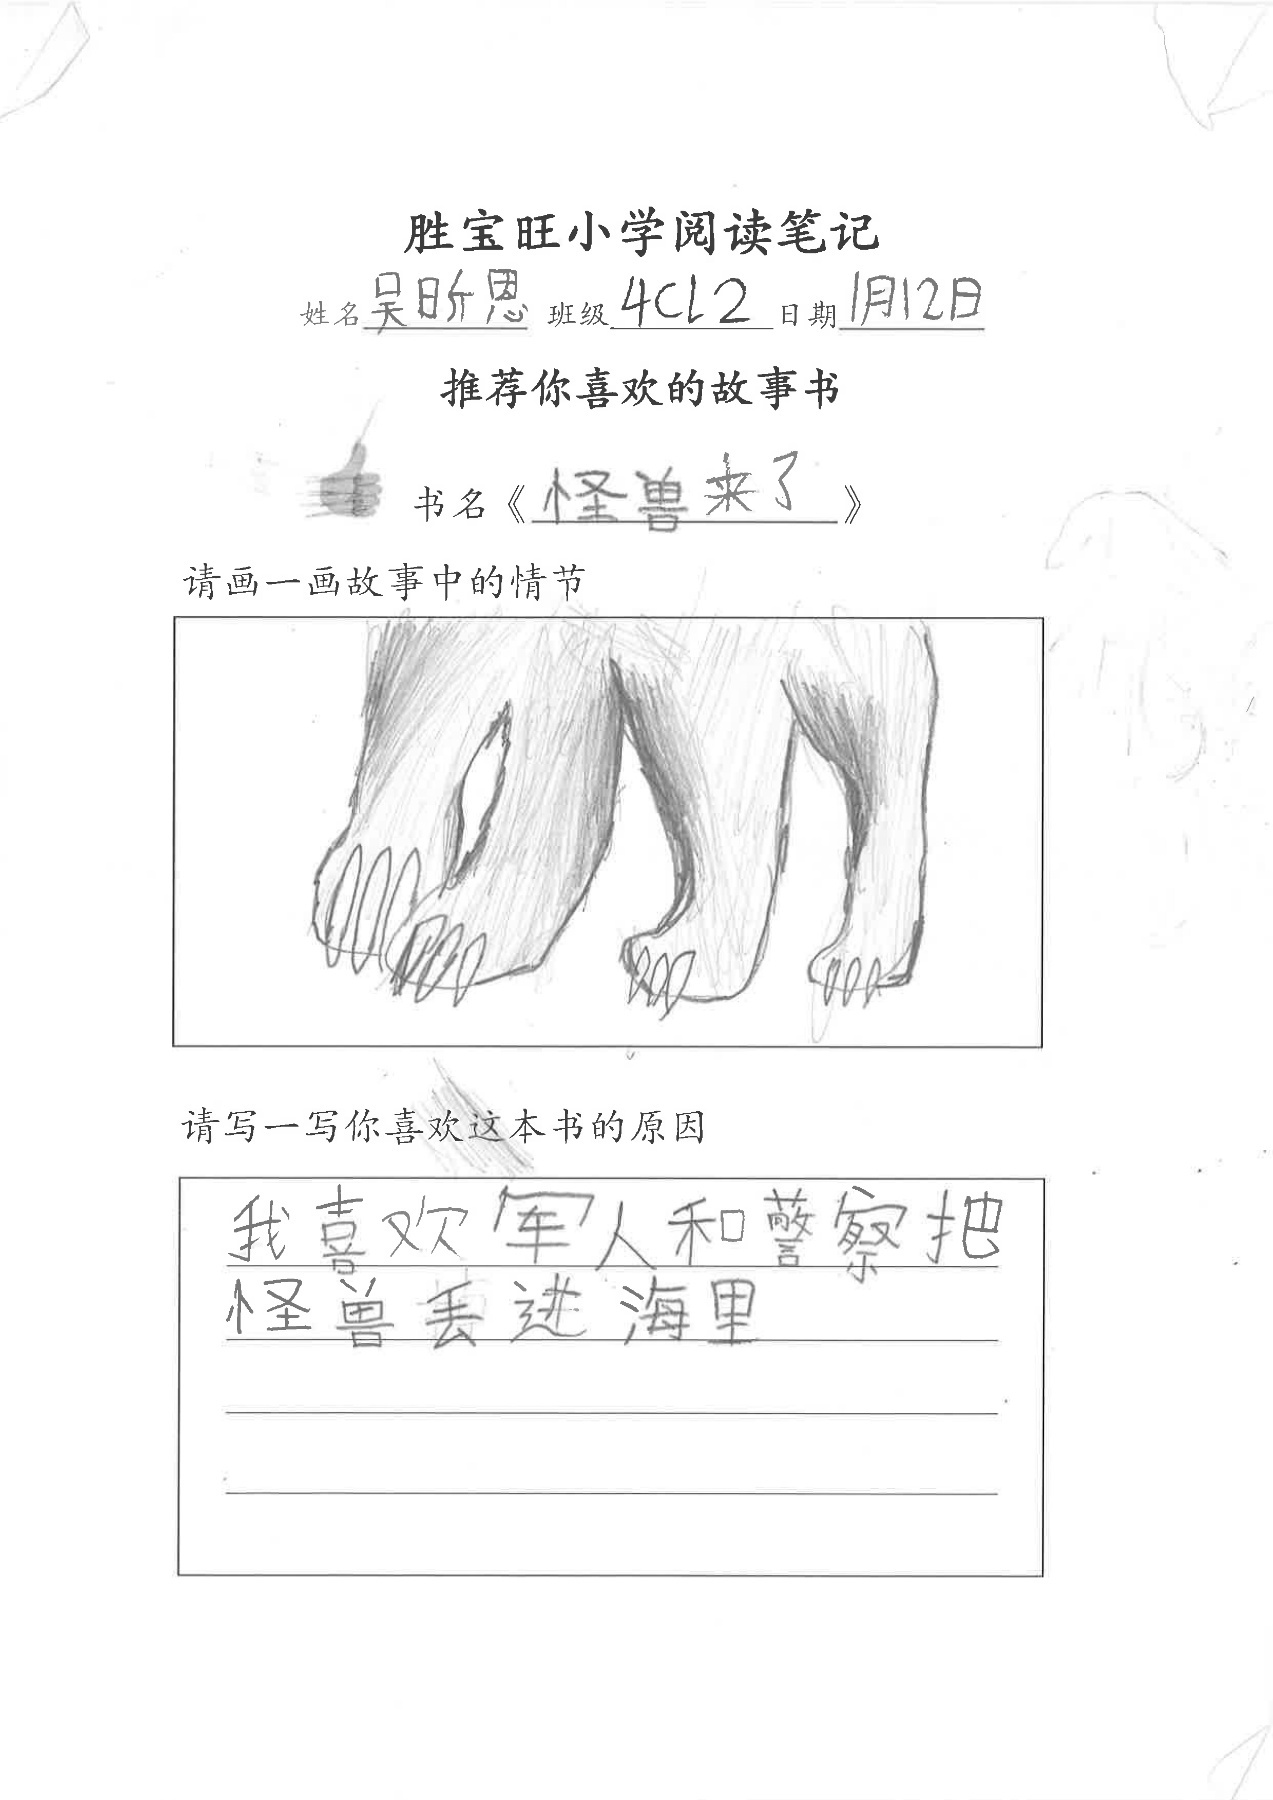 胜宝旺小学阅读笔记
姓名 吴昕恩 班级 4CL2 日期 1月12日
推荐你喜欢的故事书
书名《怪兽来了》
请画一画故事中的情节
请写一写你喜欢这本书的原因
我喜欢军人和警察把
怪兽丢进海里